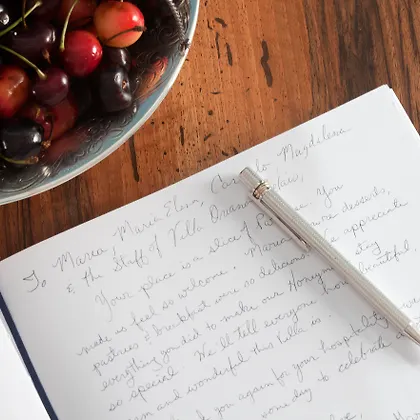 To Maria, Maria Elsa, Magdelena
& the Staff of Villa
Your place is a slice of You
made us feel so welcome. desserts,
pastries & breakfast were so delicious. We appreciate
everything you did to make our Honeymoon stay
so special. We'll tell everyone how beautiful
and wonderful this Villa is.
you again for your hospitality
some day to celebrate